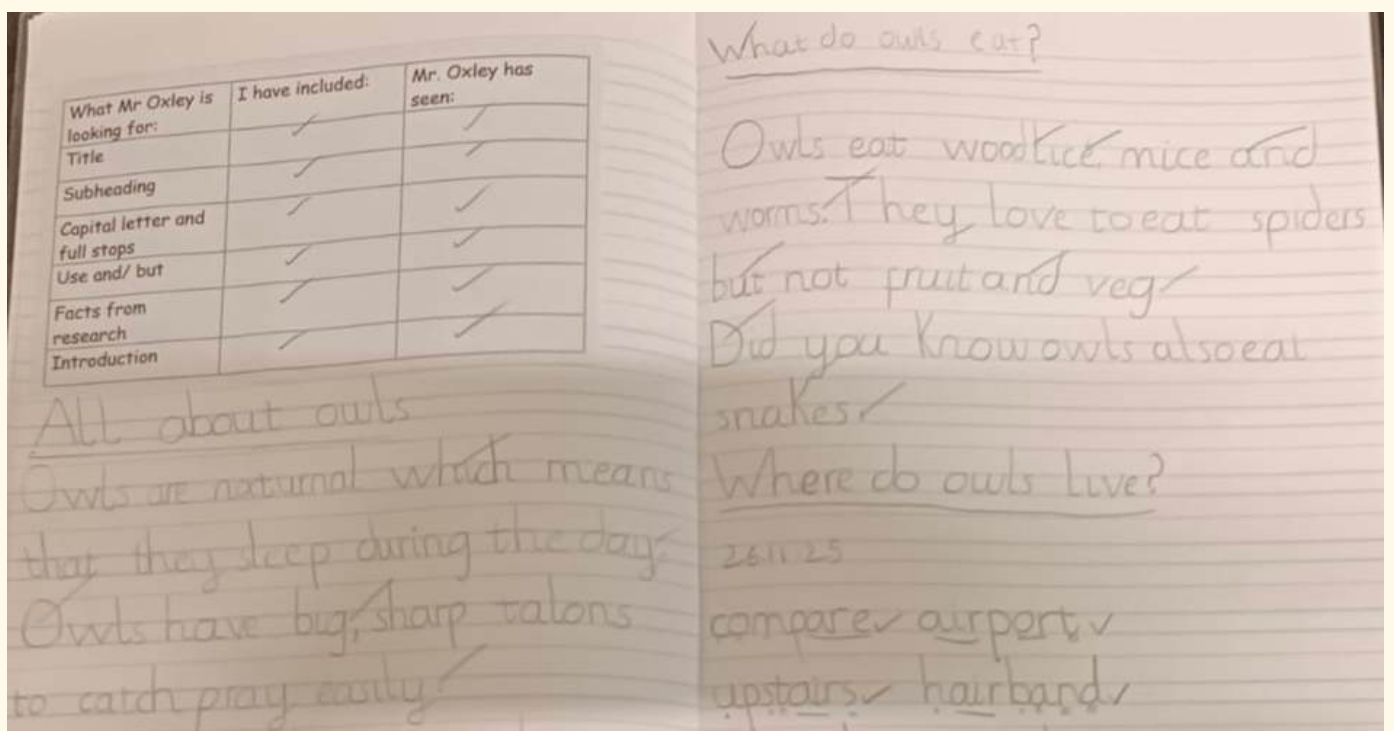 What Mr Oxley is looking for: I have included: Mr. Oxley has seen:
Title
Subheading
Capital letter and full stops
Use and/ but
Facts from research
Introduction
All about owls
Owls are nocturnal which means
that they sleep during the day.
Owls have big, sharp talons
to catch pray easily
What do owls eat?
Owls eat woodlice, mice and
worms. They love to eat spiders
but not fruit and veg
Did you know owls also eat
snakes
Where do owls live?
26.11.25
compare airport
upstairs hairband